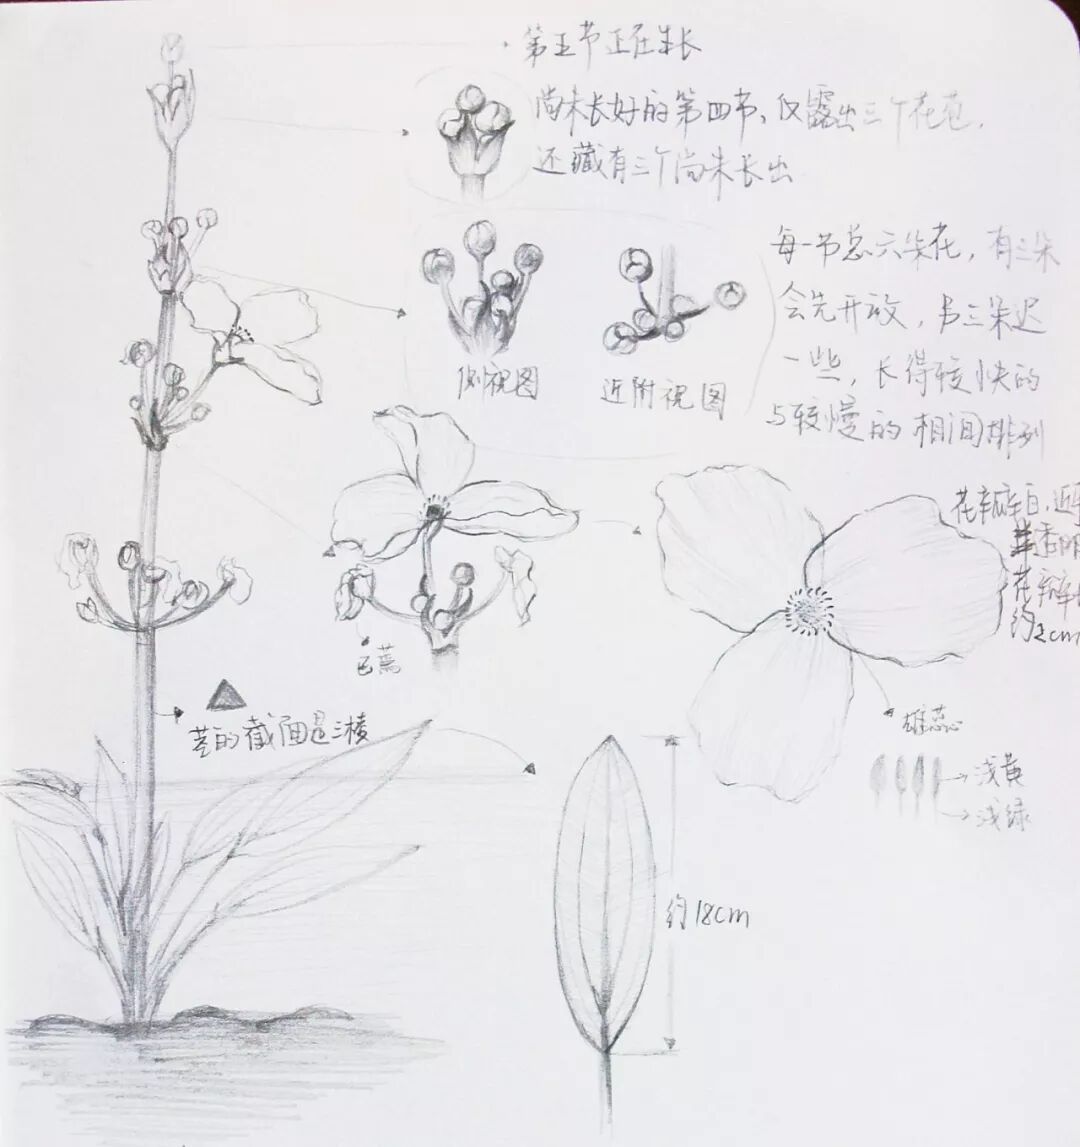 第五节正在生长
尚未长好的第四节，仅露出三个花苞，
还藏有三个尚未长出
每一节总六朵花，有三朵
会先开放，另三朵迟
一些，长得较快的
与较慢的相间排列
侧视图
近附视图
花瓣白，近
半透明
花瓣
约2cm
已蔫
茎的截面是三棱
雄蕊
浅黄
浅绿
约18cm